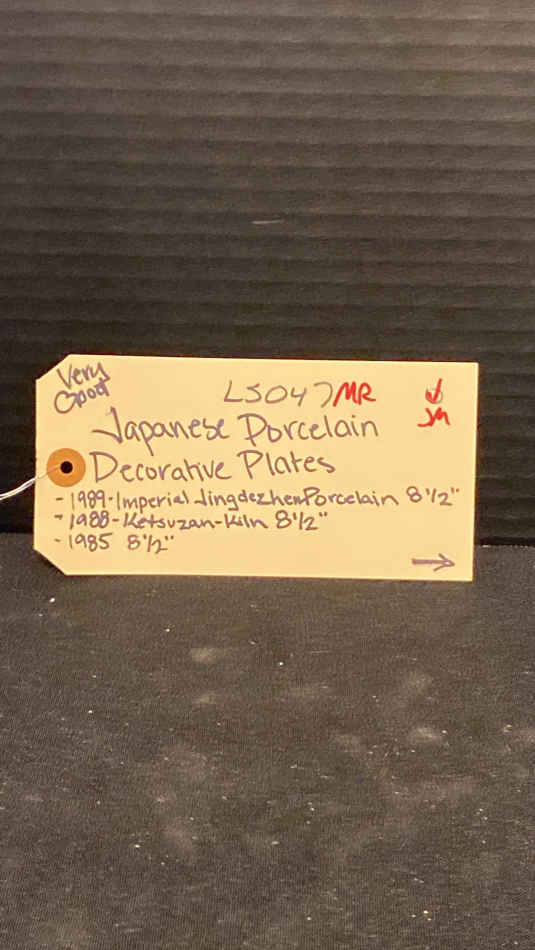 Very
Good
LS047 MR
JM
Japanese Porcelain
Decorative Plates
- 1989-Imperial Jingdezhen Porcelain 8 1/2"
- 1988-Ketsuzan-Kiln 8 1/2"
- 1985 8 1/2"
→